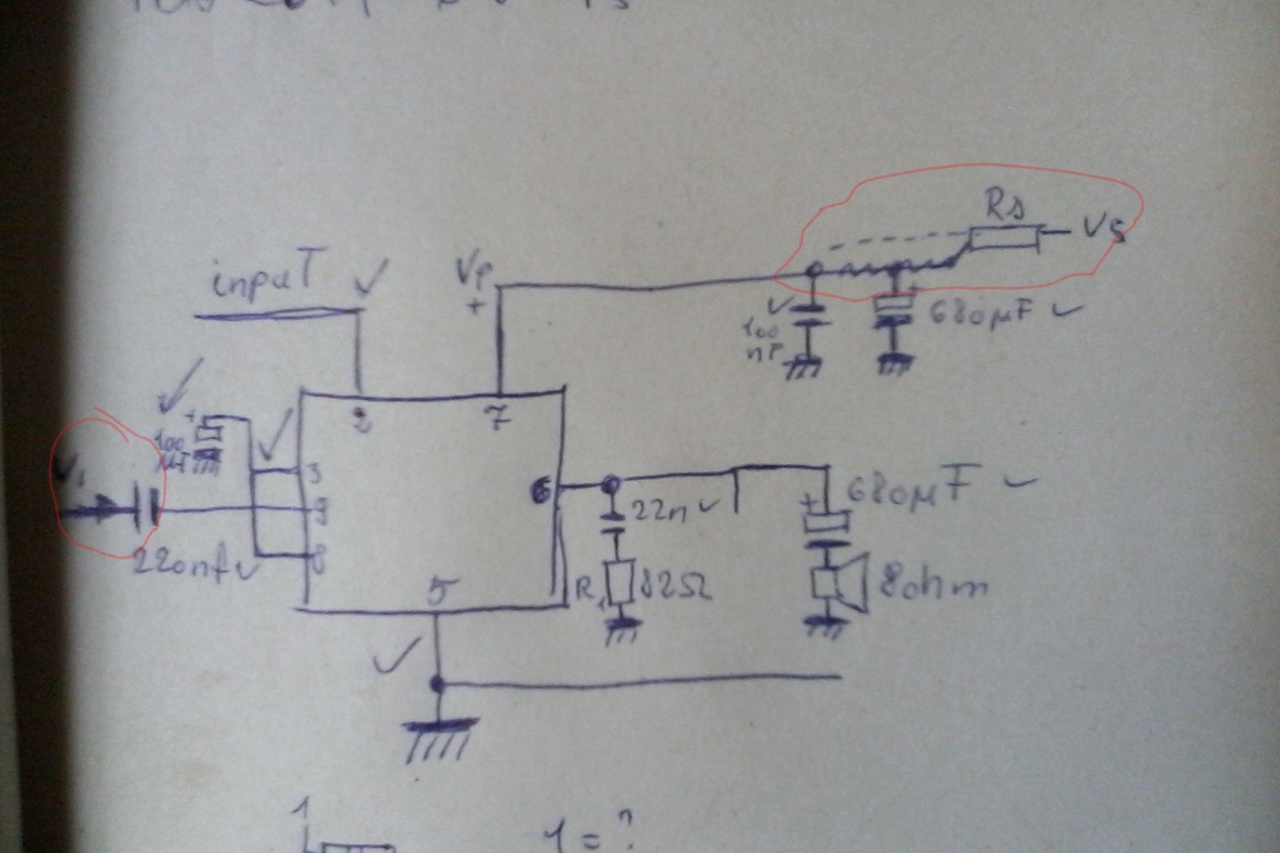 Rs
Vs
Vp
+
inpuT
+
680µF
100
nF
2
7
+
100
µF
3
V1
9
6
22n
+
680µF
220nf
8
5
R1
82Ω
8ohm
1
1 = ?